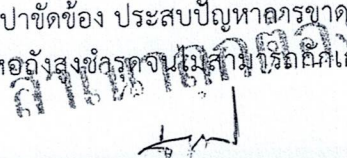 ปาขัดข้อง ประสบปัญหาการขาด
หอถังสูงชำรุดจนไม่สามารถกักเก
สำเนาถูกต้อง